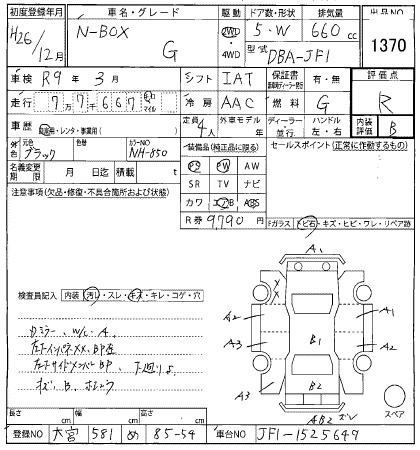 初度登録年月 車名・グレード 駆動 ドア数・形状 排気量 出品NO
H26/12月 N-BOX G 2WD・4WD 5・W 660cc 1370
型式 DBA-JF1
車検 R9年 3月 シフト IAT 保証書 有・無 評価点
走行 77667 km マイル 冷房 AAC 燃料 G R
車歴 自家用・レンタ・事業用( ) 定員 4人 外車モデル 年 ディーラー・並行 ハンドル 左・右 内装評価 B
元色 ブラック 色替 カラーNO NH-850 装備品(純正品に限る) セールスポイント(正常に作動するもの)
名義変更期限 月 日迄 積載 t
PS PW AW
SR TV ナビ
カワ エアB ABS
注意事項(欠品・修復・不具合箇所および状態)
R券 9,790円 Fガラス トビ石・キズ・ヒビ・ワレ・リペア跡
検査員記入 内装 汚れ・スレ・キズ・キレ・コゲ・穴
A1
A2 A1
A3 B1 A2
A3 B2
AB2
スペア
長さ cm 幅 cm 高さ cm
登録NO 大宮 581 め 85-54 車台NO JF1-1525649